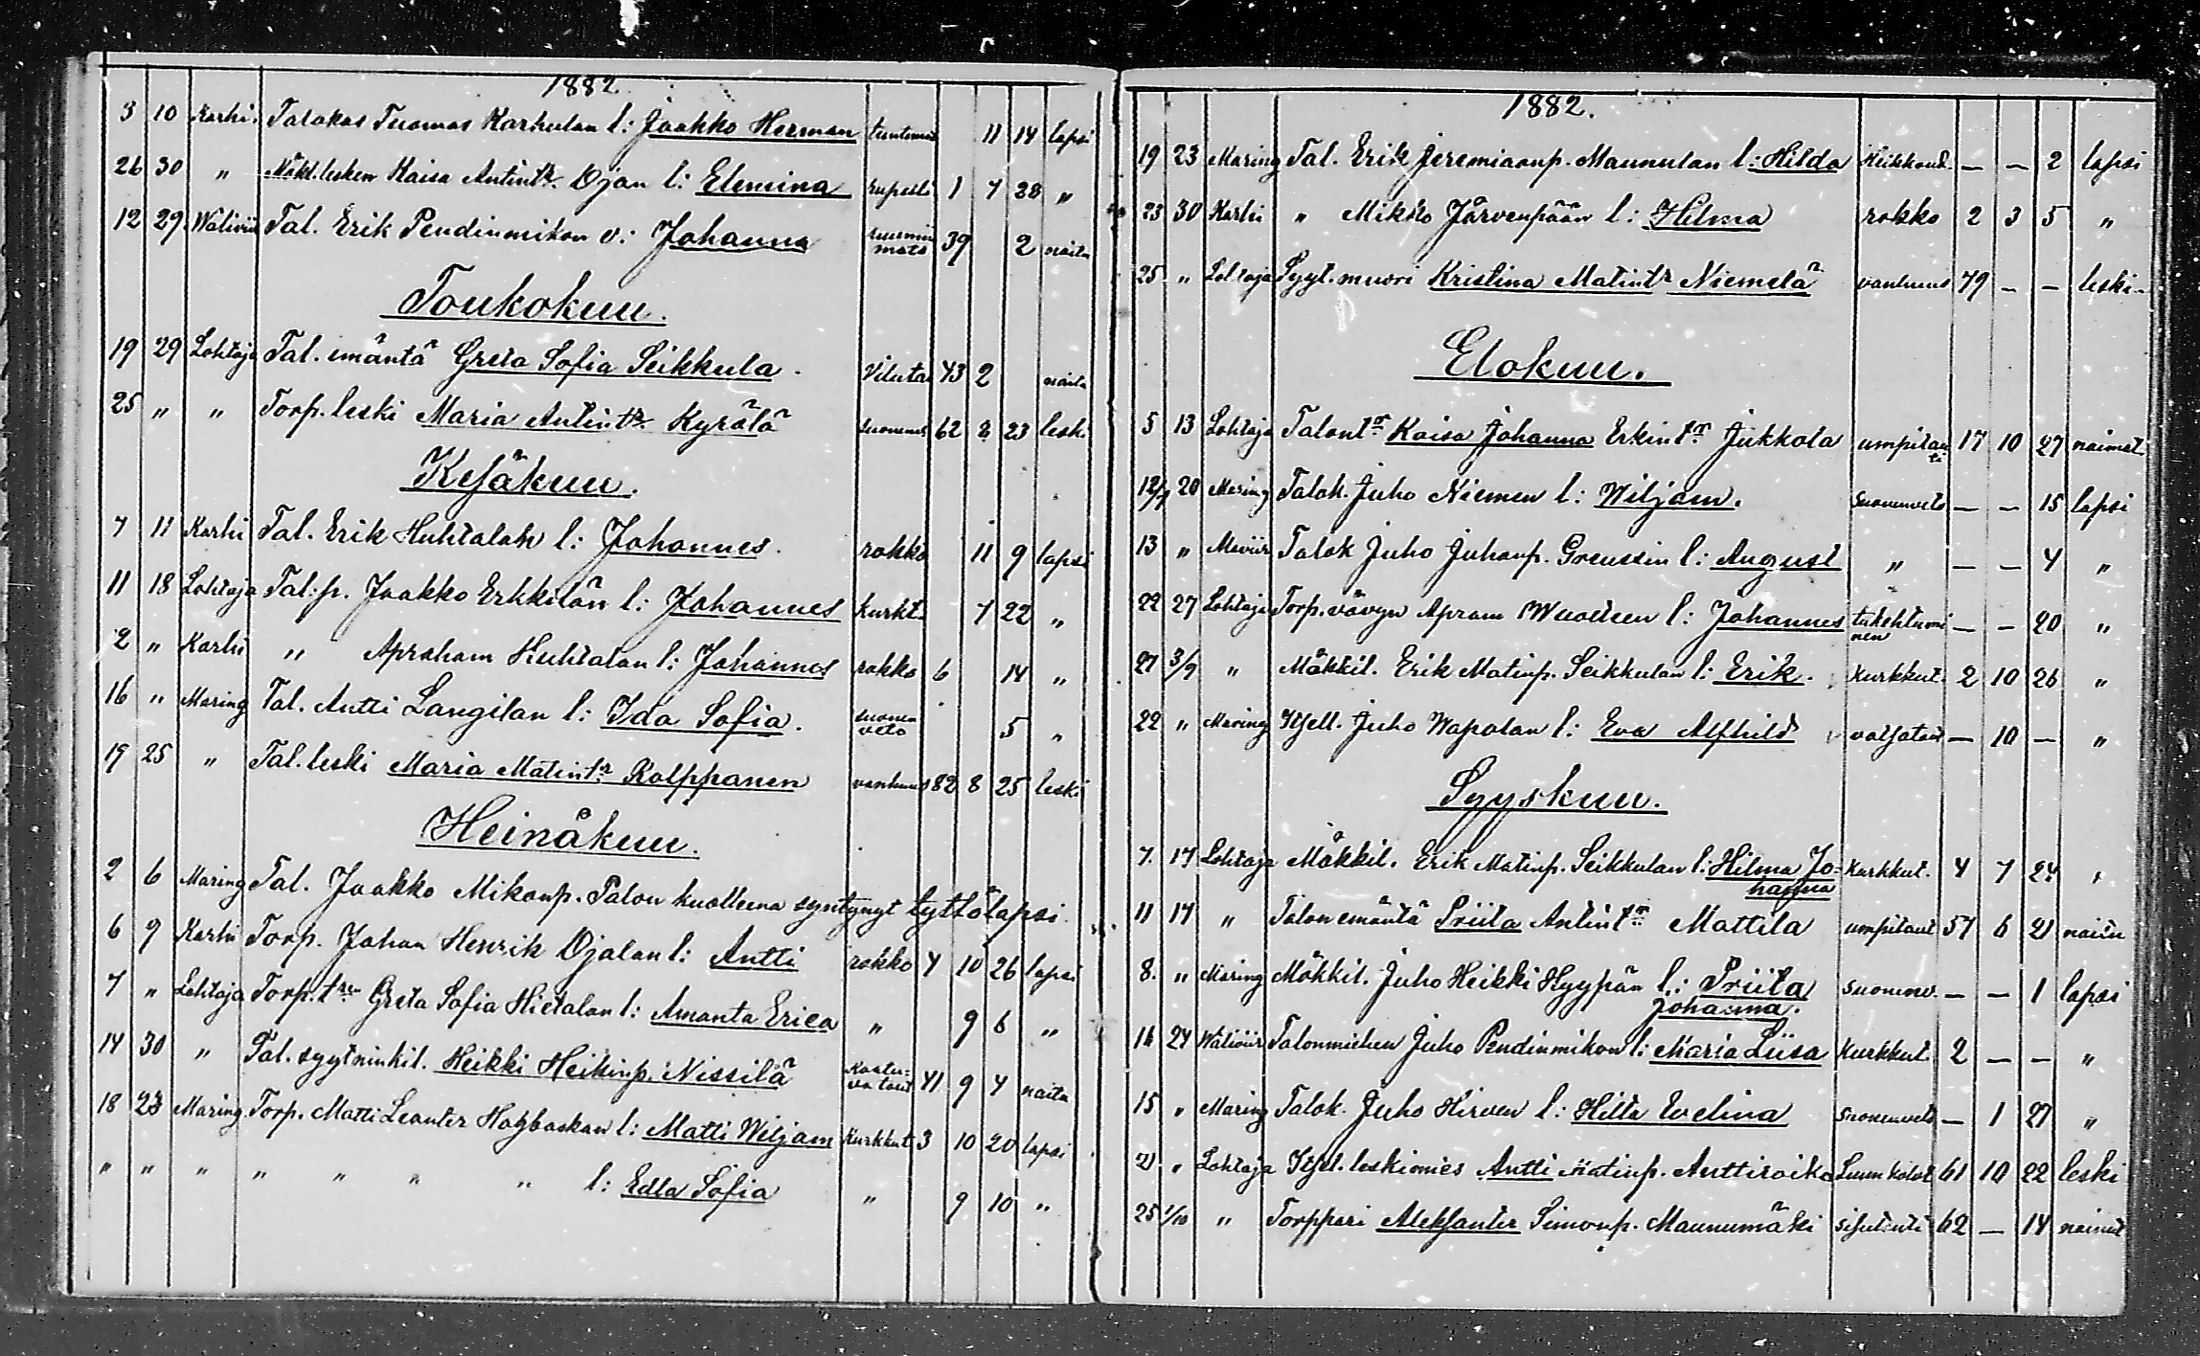 1882
3 10 Karhi. Talokas Tuomas Karhulan l: Jaakko Herman 11 14 lapsi
26 30 " Mökl.lesken Kaisa Antintr. Ojan l: Elemina rupuli 1 7 28 "
12 29 Waliviir Tal. Erik Pendinmikon v: Johanna 39 2 naitu
Toukokuu.
19 29 Lohtaja Tal. emäntä Greta Sofia Seikkula. Vilutau 43 2 naitu
25 " " Torp. leski Maria Antintr Kyrölä 62 8 23 leski
Kesäkuu.
7 11 Karhi Tal. Erik Huhtalan l: Johannes. rokko 11 9 lapsi
11 18 Lohtaja Tal:p. Jaakko Erkkilän l: Johannes Kurkt. 7 22 "
2 " Karhi " Apraham Huhtalan l: Johannes rokko 6 14 "
16 " Maring Tal. Antti Langilan l: Ida Sofia. suonen
veto 5 "
19 25 " Tal. leski Maria Matintr. Kalppanen vanhuus 82 8 25 leski
Heinäkuu.
2 6 Maring Tal. Jaakko Mikonp. Palon kuolleena syntynyt tyttölapsi.
6 9 Karhi Torp. Johan Henrik Ojalan l: Antti rokko 4 10 26 lapsi
7 " Lohtaja Torp. tren Greta Sofia Hietalan l: Amanta Erica " 9 6 "
14 30 " Tal. syytninkil. Heikki Heikinp. Nissilä 41 9 4 naitu
18 23 Maring Torp. Matti Leanter Högbackan l: Matti Wiljam Kurkkut 3 10 20 lapsi
" " " " " " " l: Edla Sofia " 9 10 "
1882.
19 23 Maring Tal. Erik Jeremiaanp. Maunulan l: Hilda Heikkoud. — — 2 lapsi
23 30 Karhi " Mikko Järvenpään l: Hilma rokko 2 3 5 "
25 " Lohtaja Syyt. muori Kristina Matintr Niemelä vanhuus 79 — — leski
Elokuu.
5 13 Lohtaja Talontr Kaisa Johanna Erkintr Jukkola umpitau
ti 17 10 27 naimat.
12/7 20 Maring Talok. Juho Niemen l: Wiljam. Suonenveto — — 15 lapsi
13 " Talok Juho Juhonp. Greussin l: August " — — 4 "
22 27 Lohtaja Torp. vävyn Apram Wuolteen l: Johannes tukehtumi
nen — — 20 "
27 3/9 " Mökkil. Erik Matinp. Seikkulan l: Erik. Kurkkut. 2 10 26 "
22 " Maring Itsell. Juho Wapolan l: Eva Alfhild vatsataut — 10 — "
Syyskuu.
7. 17 Lohtaja Mökkil. Erik Matinp. Seikkulan l: Hilma Jo=
hanna Kurkkut. 4 7 24 "
11 17 " Talon emäntä Priita Antintr Mattila umpitaut 57 6 21 naitu
8. " Maring Mökkil. Juho Heikki Hyypän l: Priita
Johanna. suonenv. — — 1 lapsi
16 24 Waliviir Talonmiehen Juho Pendinmikon l: Maria Liisa Kurkkut. 2 — — "
15 " Maring Talok. Juho Hirven l: Hilta Evelina Suonenveto — 1 27 "
21 " Lohtaja Itsel. leskimies Antti Matinp. Anttiroiko 61 10 22 leski
25 1/10 " Torppari Aleksanter Simonp. Maunumäki 62 — 14 nainut